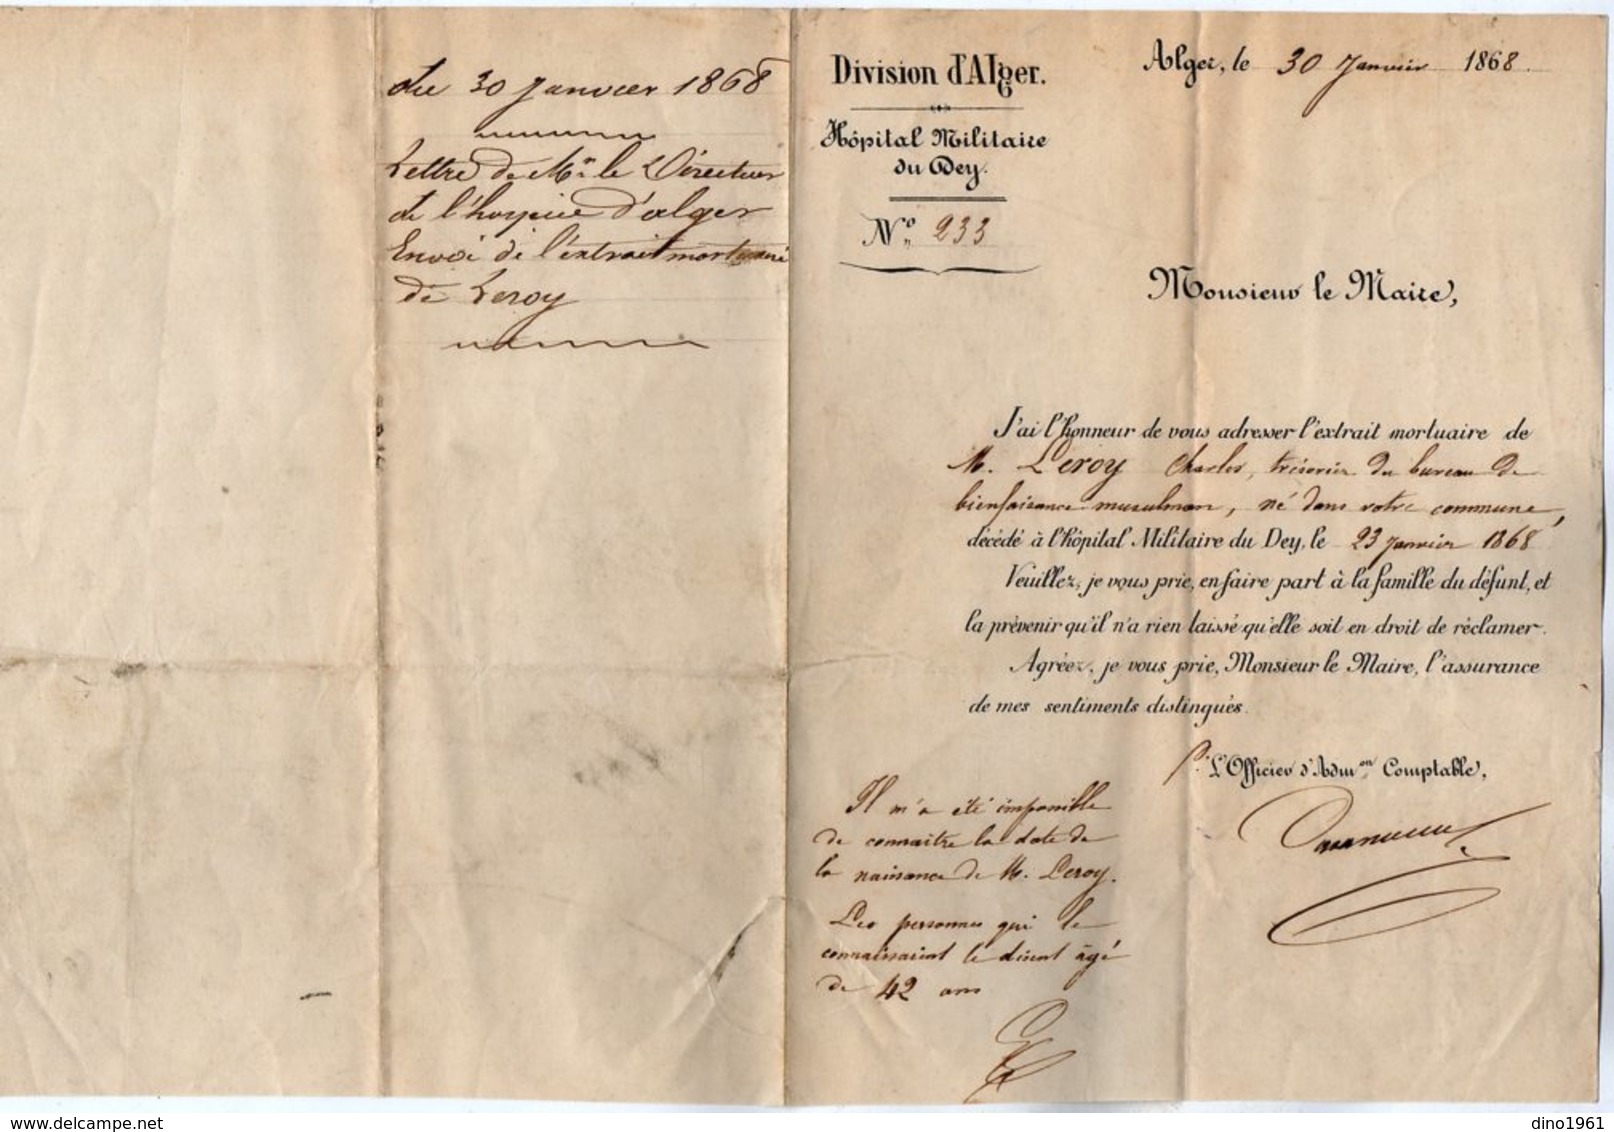 du 30 Janvier 1868
Lettre de Mr. le Directeur
de l'hospice d'alger
Envoi de l'extrait mortuaire
de Leroy
Division d'Alger.
Hôpital Militaire
du Dey.
No. 233
Alger, le 30 Janvier 1868.
Monsieur le Maire,
J'ai l'honneur de vous adresser l'extrait mortuaire de
M. Leroy Charles, trésorier du bureau de
bienfaisance musulman, né dans votre commune,
décédé à l'hôpital Militaire du Dey, le 23 janvier 1868
Veuillez, je vous prie, en faire part à la famille du défunt, et
la prévenir qu'il n'a rien laissé qu'elle soit en droit de réclamer.
Agréez, je vous prie, Monsieur le Maire, l'assurance
de mes sentiments distingués.
P. L'Officier d'Admon Comptable,
Il m'a été impossible
de connaître la date de
la naissance de M. Leroy.
Les personnes qui le
connaissaient le disent âgé
de 42 ans
dino1961